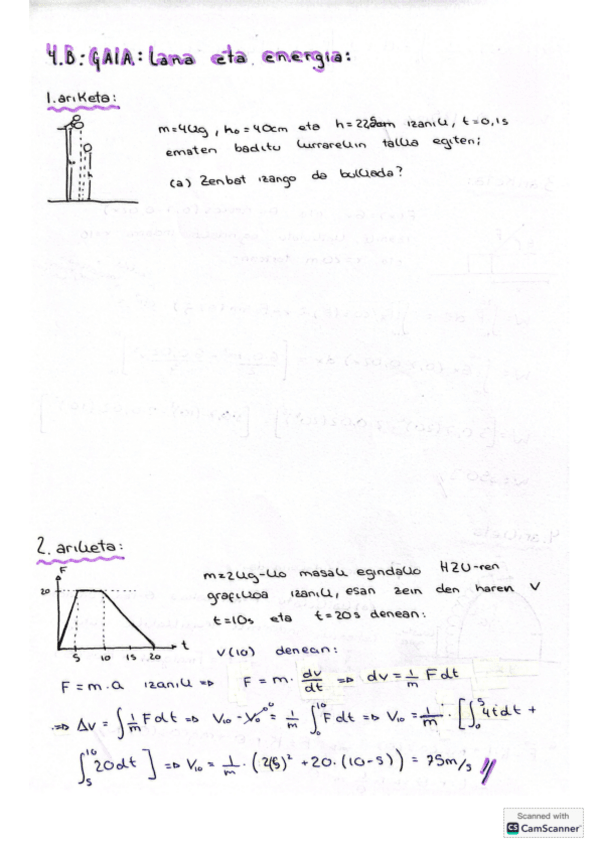 4.B: GAIA: Lana eta energia:
1. ariketa:
m=4kg, h₀=40cm eta h= izanik, t=0,1s
ematen baditu lurrarekin talka egiten;
(a) Zenbat izango da bulkada?
2. ariketa:
F
20
5 10 15 20 t
m=2kg-ko masak egindako HZU-ren
grafikoa izanik, esan zein den haren v
t=10s eta t=20s denean:
v(10) denean:
F=m·a izanik ⇒ F=m·dv/dt ⇒ dv=1/m Fdt
⇒ Δv=∫1/m Fdt ⇒ V₁₀-V₀=1/m ∫₀¹⁰ Fdt ⇒ V₁₀=1/m·[∫₀⁵ 4tdt+
∫₅¹⁰ 20dt] ⇒ V₁₀=1/m·(2(5)²+20·(10-5))=75m/s //
Scanned with
CS CamScanner